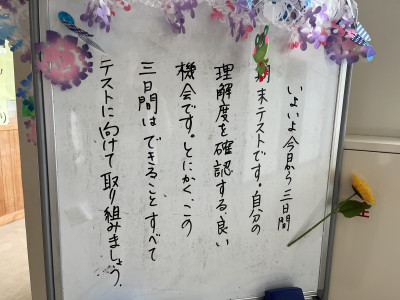 いよいよ今日から三日間
末テストです。自分の
理解度を確認する良い
機会です。とにかく、この
三日間はできることすべて
テストに向けて取り組みましょう。